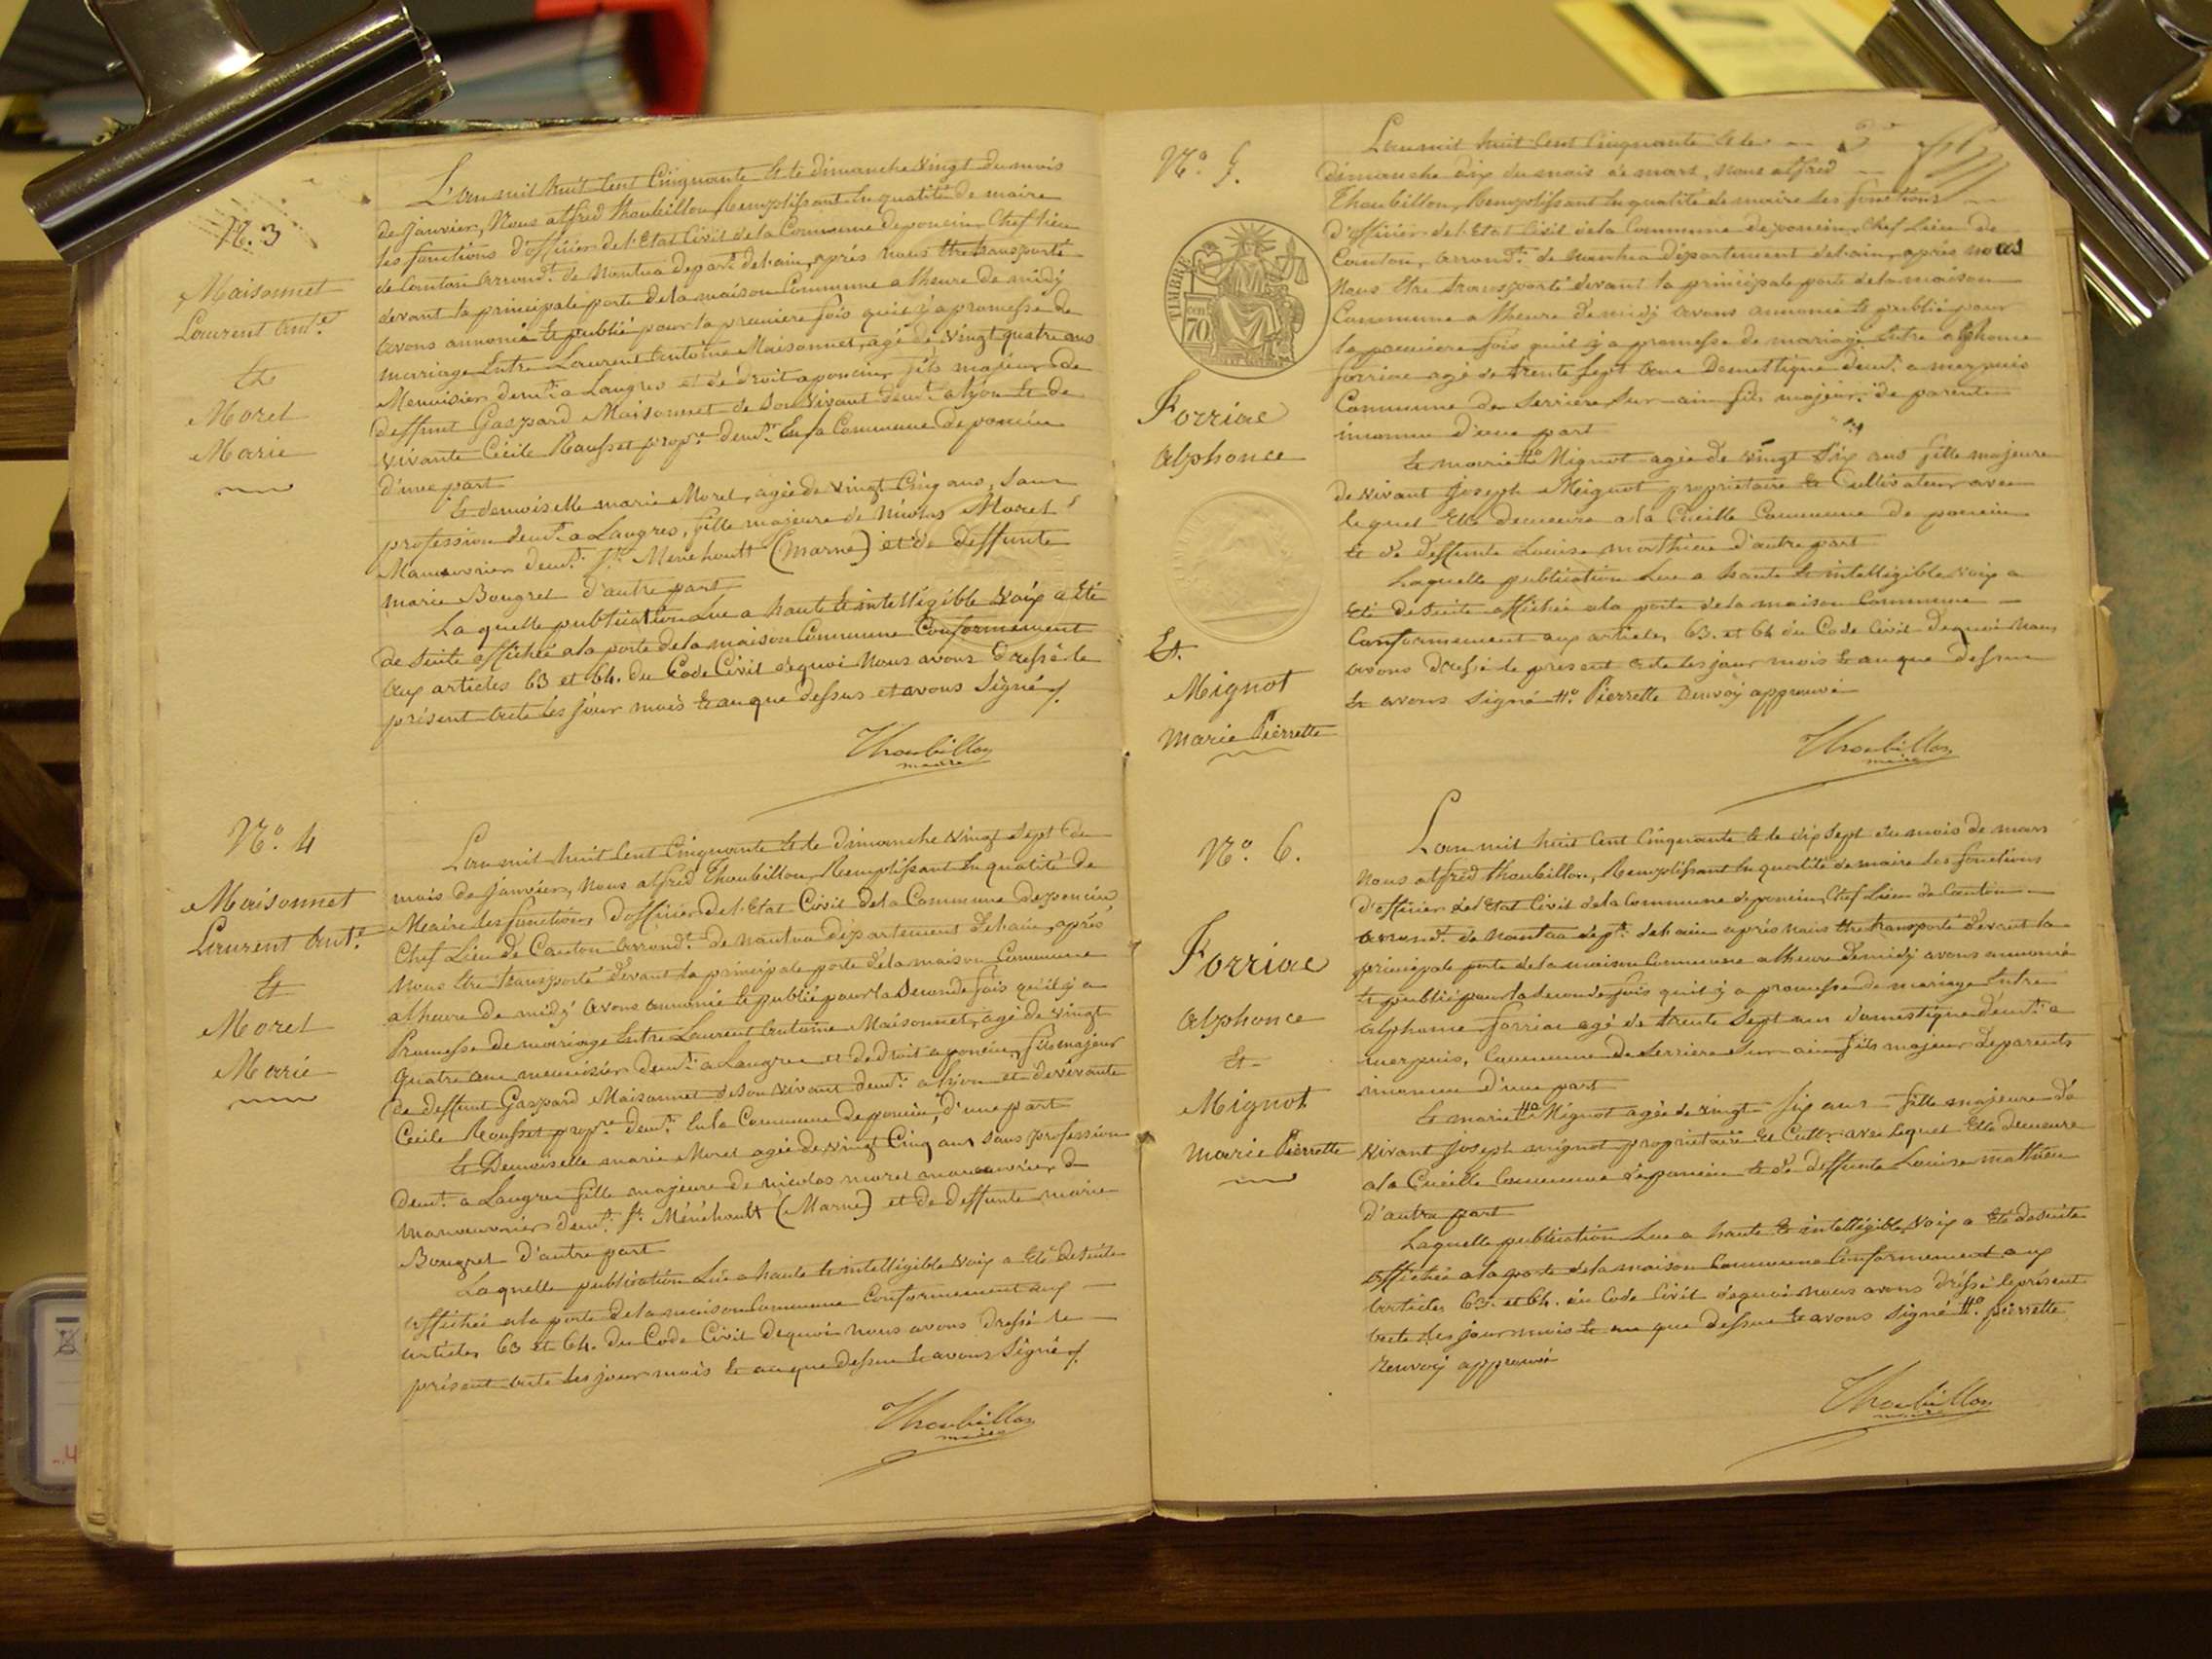 N.° 3
Maisonnet
Laurent Ant.e
Et
Morel
Marie
L'an mil huit Cent Cinquante Et le dimanche vingt du mois
de Janvier, Nous alfred Thoubillon, Remplissant En qualité de maire
les fonctions d'officier de l'Etat Civil de la Commune de poncin Chef lieu
de Canton arrond.t de Nantua depart.t de l'ain, après nous Etre transporté
devant la principale porte de la maison Commune a l'heure de midÿ
avons annoncé Et publié pour la premiere fois qu'il ÿ a promesse de
mariage Entre Laurent Antoine Maisonnet, agé de vingt quatre ans
Menuisier dem.t a Langres et de droit a poncin, fils majeur de
deffunt Gaspard Maisonnet de Son vivant dem.t a lyon Et de
vivante Cécile Rousset prop.re dem.te En la Commune de poncin
d'une part
Et demoiselle marie Morel, agée de vingt Cinq ans, Sans
profession dem.t a Langres, fille majeure de Nicolas Morel
Manouvrier dem.t S.te Menehoult (Marne) et de deffunte
marie Bougrel d'autre part
La quelle publication Lue a haute Et intelligible Voix a Eté
de Suite affichée a la porte de la maison Commune Conformement
aux articles 63 et 64. du Code Civil dequoi Nous avons Dressé le
présent acte les jour mois Et an que dessus et avons Signé ⁄.
Thoubillon
maire
N.° 4
Maisonnet
Laurent Ant.e
Et
Morel
Marie
L'an mil huit Cent Cinquante Et le dimanche vingt Sept du
mois de Janvier, Nous alfred Thoubillon, Remplissant En qualité de
Maire les fonctions d'officier de l'Etat Civil de la Commune de poncin
Chef Lieu de Canton arrond.t de nantua département de l'ain, après
Nous Etre transporté devant la principale porte de la maison Commune
a l'heure de midÿ avons annoncé Et publié pour la Seconde fois qu'il ÿ a
Promesse de mariage Entre Laurent Antoine Maisonnet, agé de vingt
quatre ans menuisier dem.t a Langres et de droit a poncin, fils majeur
de deffunt Gaspard Maisonnet de Son vivant dem.t a lyon et de vivante
Cécile Rousset prop.re dem.t En la Commune de poncin, d'une part
Et Demoiselle marie Morel agée de vingt Cinq ans Sans profession
dem.t a Langres fille majeure de nicolas morel manouvrier d
manouvrier dem.t S.te Ménéhoult (Marne) et de deffunte marie
Bougrel d'autre part
Laquelle publication Lue a haute Et intelligible Voix a Eté de Suite
affichée a la porte de la maison Commune Conformement aux
articles 63 et 64. du Code Civil dequoi nous avons Dressé le
présent acte les jour mois Et an que dessus Et avons Signé ⁄.
Thoubillon
maire
N.° 5.
TIMBRE
70
Forriac
Alphonce
Et.
Mignot
Marie Pierrette
L'an mil huit Cent Cinquante Et le
dimanche dix du mois de mars, Nous alfred
Thoubillon, Remplissant En qualité de maire les fonctions
d'officier de l'Etat Civil de la Commune de poncin, Chef Lieu de
Canton, arrond.t de nantua département de l'ain, après nous
Nous Etre transporté devant la principale porte de la maison
Commune a l'heure de midÿ avons annoncé Et publié pour
la premiere fois qu'il ÿ a promesse de mariage Entre alphonce
forriac agé de trente Sept ans Domestique dem.t a merpuis
Commune de Serriere Sur ain fils majeur de parents
inconnu d'une part
Et marie #° Mignot agée de vingt Six ans fille majeure
de vivant Joseph Mignot propriétaire Et Cultivateur avec
lequel Elle demeure a la Cueille Commune de poncin
Et de deffunte Louise mathieu d'autre part
Laquelle publication Lue a haute Et intelligible voix a
Eté de Suite affichée a la porte de la maison Commune
Conformement aux articles 63. et 64 du Code Civil dequoi Nous
avons Dressé le present acte les jour mois Et an que dessus
Et avons Signé #°. Pierrette Renvoÿ approuvé
Thoubillon
maire
N.° 6.
Forriac
Alphonce
Et
Mignot
Marie Pierrette
L'an mil huit Cent Cinquante Et le dix Sept du mois de mars
Nous alfred thoubillon, Remplissant En qualité de maire les fonctions
d'officier de l'Etat Civil de la Commune de poncin, Chef Lieu de Canton
arrond.t de Nantua dep.t de l'ain après nous Etre transporté devant la
principale porte de la maison Commune a l'heure de midÿ avons annoncé
Et publié pour la Seconde fois qu'il ÿ a promesse de mariage Entre
alphonce forriac agé de trente Sept ans domestique dem.t a
merpuis, Commune de Serriere Sur ain fils majeur de parents
inconnu d'une part
Et marie #° Mignot agée de vingt Six ans fille majeure de
vivant Joseph mignot propriétaire Et Cult.r avec lequel Elle demeure
a la Cueille Commune de poncin Et de deffunte Louise mathieu
d'autre part
Laquelle publication Lue a haute Et intelligible Voix a Eté de Suite
affichée a la porte de la maison Commune Conformement aux
articles 63. et 64. du Code Civil dequoi nous avons dréssé le présent
acte les jour mois Et an que dessus Et avons Signé #°. pierrette
renvoÿ approuvé
Thoubillon
maire